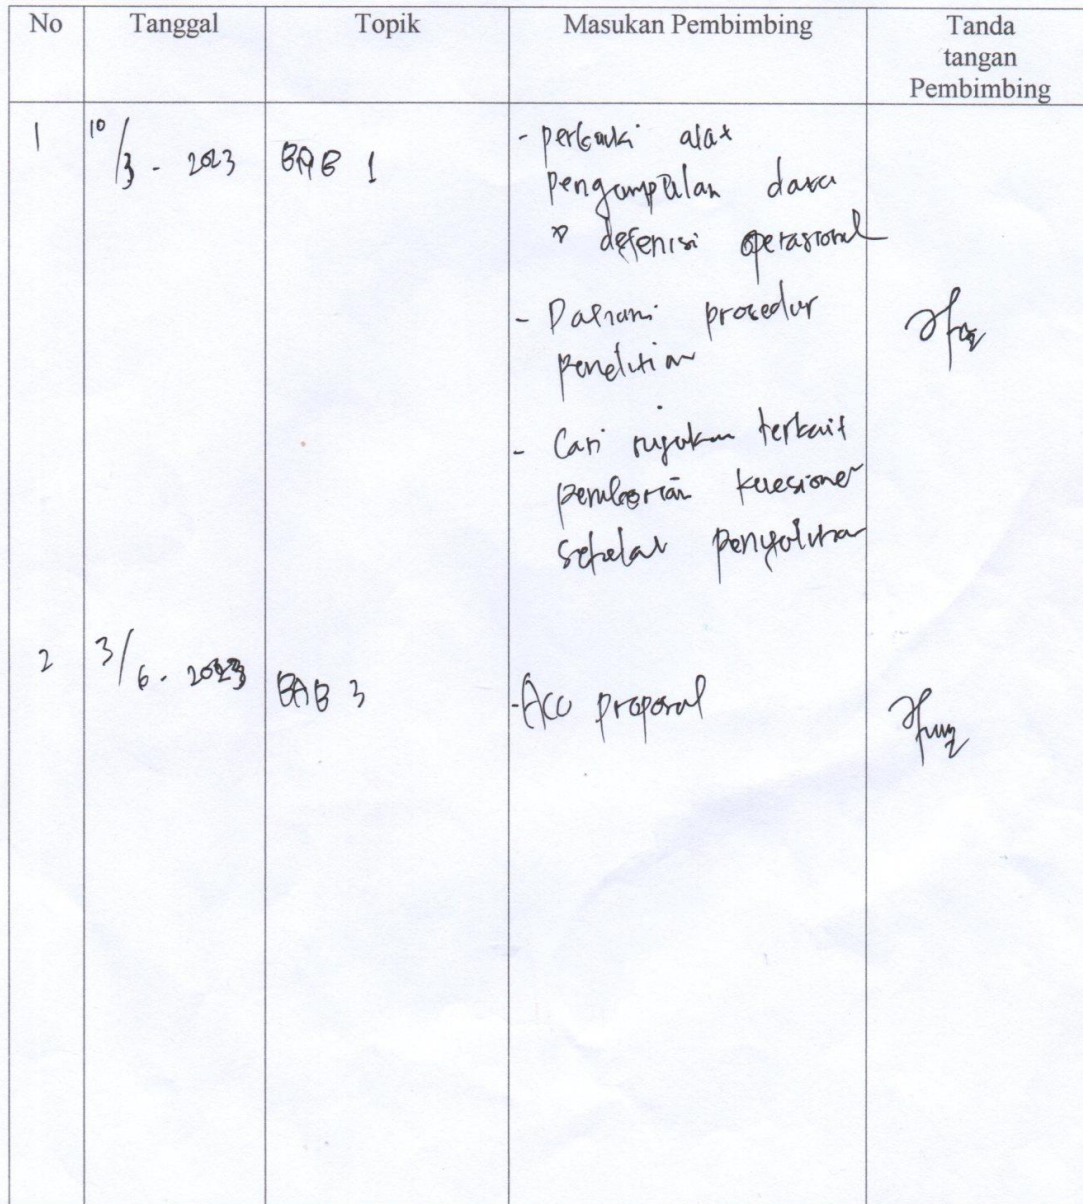 No Tanggal Topik Masukan Pembimbing Tanda
tangan
Pembimbing
1 10/3 - 2023 BAB 1 - perbaiki alat
pengumpulan data
defenisi operasional
- Pahami prosedur
penelitian
- Cari rujukan terkait
pemberian kuesioner
setelah penyuluhan
2 3/6 - 2023 BAB 3 - Acc proposal